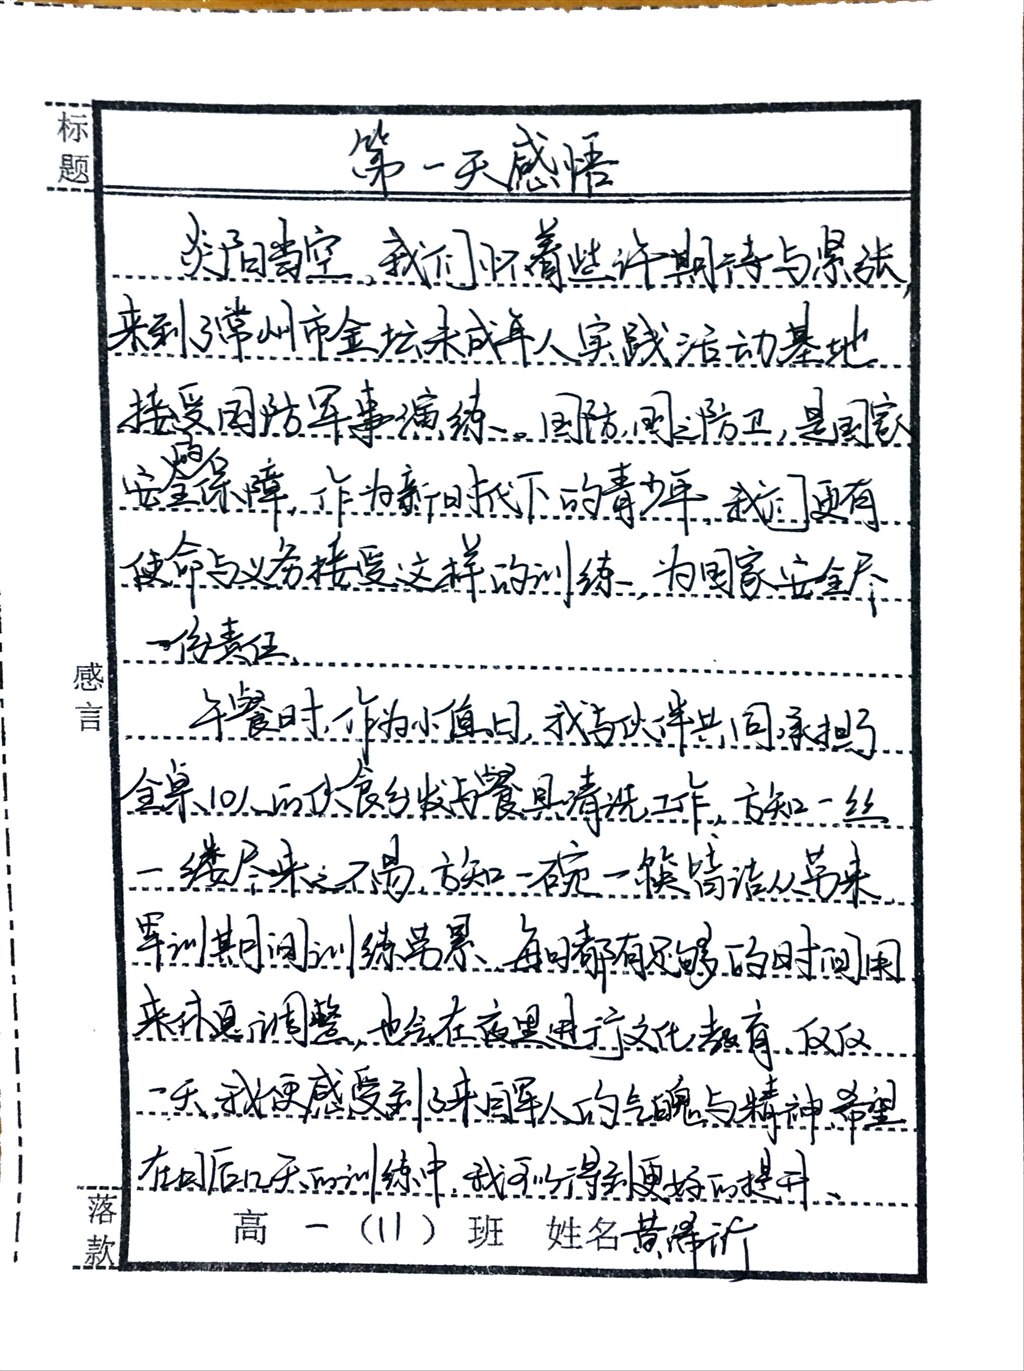 标题
第一天感悟
炎阳当空，我们怀着些许期待与紧张，
来到了常州市金坛未成年人实践活动基地
接受国防军事演练。国防，国之防卫，是国家
安全的保障，作为新时代下的青少年，我们更有
使命与义务接受这样的训练，为国家安全尽
一份责任。
感言
午餐时，作为小值日，我与伙伴共同承担了
全桌10人的伙食分发与餐具清洗工作，方知一丝
一缕尽来之不易，方知一碗一筷皆诘从劳来。
军训期间训练劳累，每日都有足够的时间用
来休息调整，也会在夜里进行文化教育，仅仅
一天，我便感受到了来自军人的气魄与精神，希望
在日后几天的训练中，我可以得到更好的提升。
落款
高一（11）班 姓名黄